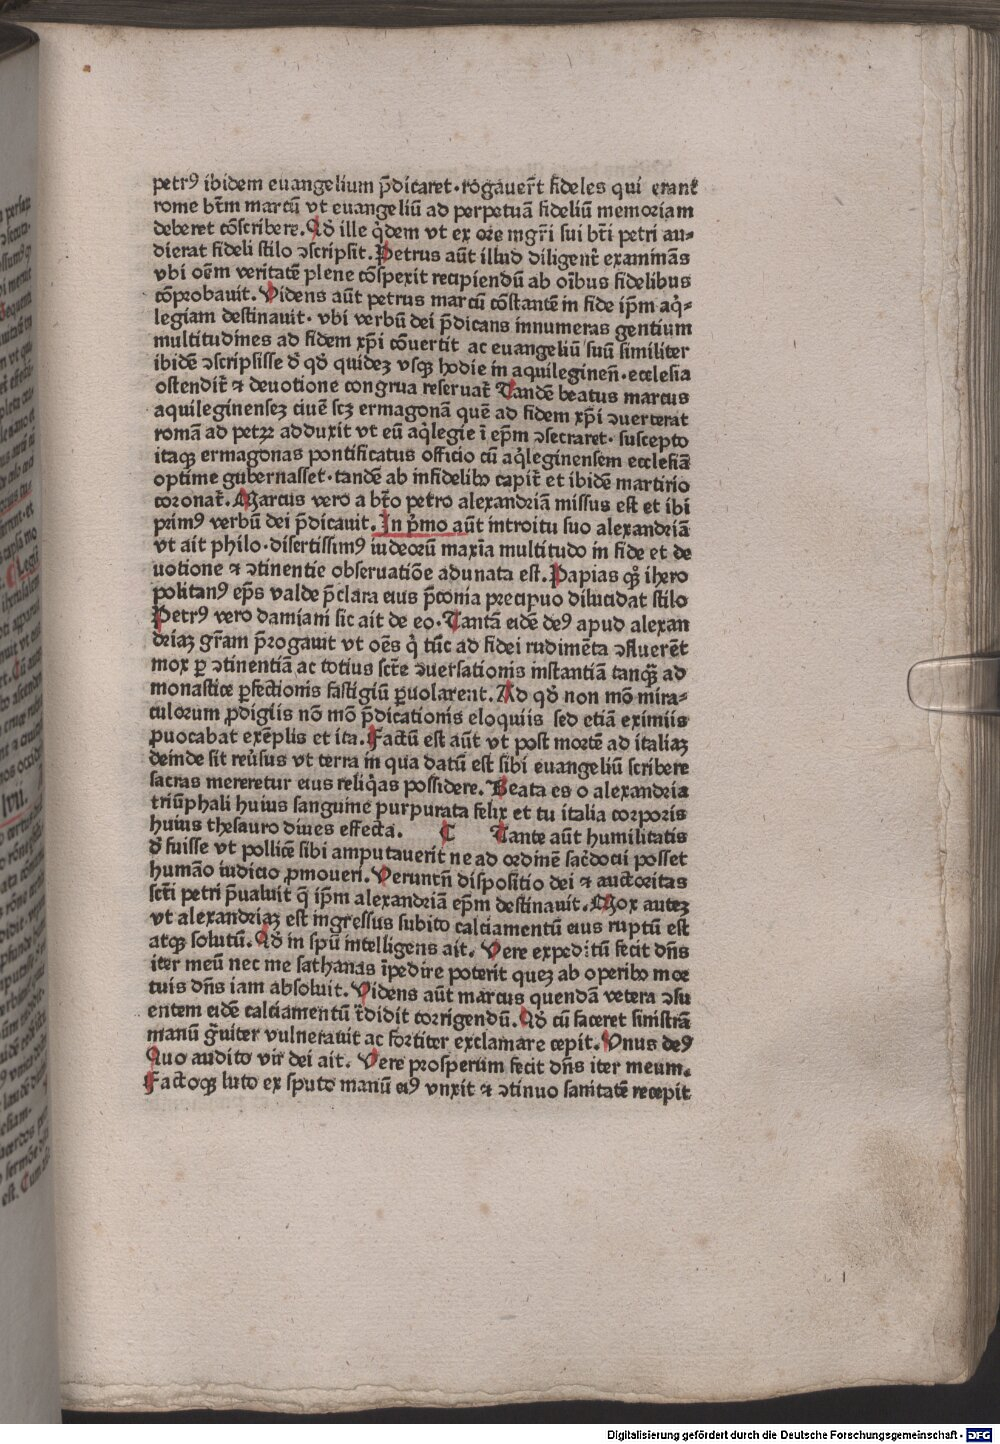 petrꝰ ibidem euangelium p̄dicaret·rogauer̄t fideles qui erant
rome bt̄m marcū vt euangeliū ad perpetuā fideliū memoriam
deberet cōscribere. Qd̕ ille q̇dem vt ex ore mgr̄i sui bt̄i petri au⸗
dierat fideli stilo ↄscripsit. Petrus aūt illud diligent̄ examinās
vbi oēm veritatē plene cōspexit recipiendū ab oībus fidelibus
cōprobauit. Videns aūt petrus marcū cōstantē in fide ip̄m aq̇⸗
legiam destinauit· vbi verbū dei p̄dicans innumeras gentium
multitudines ad fidem xp̄i cōuertit ac euangeliū suū similiter
ibidē ↄscripsisse d̕ qd̕ quideꝫ vsqꝫ hodie in aquileginen̄·ecclesia
ostendit̄ ⁊ deuotione congrua reseruat̄ Tandē beatus marcus
aquileginenseꝫ ciuē scꝫ ermagonā quē ad fidem xp̄i ↄuerterat
romā ad petꝝ adduxit vt eū aq̇legie ī ep̄m ↄsecraret· suscepto
itaqꝫ ermagonas pontificatus officio cū aq̇leginensem ecclesiā
optime gubernasset·tandē ab infidelibꝰ capit̄ et ibidē martirio
coronat̄. Marcus vero a bt̄o petro alexandriā missus est et ibi
primꝰ verbū dei p̄dicauit. In ṗmo aūt introitu suo alexandriā
vt ait philo·disertissimꝰ iudeorū maxīa multitudo in fide et de
uotione ⁊ ↄtinentie obseruatiōe adunata est. Papias qꝫ ihero
politanꝰ ep̄s valde p̄clara eius p̄conia precipuo dilucidat stilo
Petrꝰ vero damiani sic ait de eo·Tantā eidē deꝰ apud alexan
driaꝫ gr̄am p̄rogauit vt oēs q̇ tūc ad fidei rudimēta ↄfluerēt
mox ꝑ ↄtinentiā ac totius sct̄e ↄuersationis instantiā tanqꝫ ad
monastice ꝑfectionis fastigiū ꝑuolarent. Ad qd̕ non mō mira⸗
culorum ꝓdigiis nō mō p̄dicationis eloquiis sed etiā eximiis
ꝓuocabat exēplis et ita. Factū est aūt vt post mortē ad italiaꝫ
deinde sit reu̕sus vt terra in qua datū est sibi euangeliū scribere
sacras mereretur eius reliq̇as possidere. Beata es o alexandria
triūphali huius sanguine purpurata felix et tu italia corporis
huius thesauro diues effecta. C Tante aūt humilitatis
d̕ fuisse vt pollicē sibi amputauerit ne ad ordinē sac̕docii posset
humāo iudicio ꝓmoueri. Veruntn̄ dispositio dei ⁊ auctoritas
sct̄i petri p̄ualuit q̄ ip̄m alexandriā ep̄m destinauit. Mox auteꝫ
vt alexandriaꝫ est ingressus subito calciamentū eius ruptū est
atqꝫ solutū. Qd̕ in spū intelligens ait. Vere expeditū fecit dn̄s
iter meū nec me sathanas īpedire poterit queꝫ ab operibꝰ mor
tuis dn̄s iam absoluit. Videns aūt marcus quendā vetera ↄsu
entem eidē calciamentū t̄didit corrigendū. Qd̕ cū faceret sinistrā
manū g̕uiter vulnerauit ac fortiter exclamare cepit. Vnus deꝰ
Quo audito vir dei ait. Vere prosperum fecit dn̄s iter meum.
Factoqꝫ luto ex sputo manū eiꝰ vnxit ⁊ ↄtinuo sanitatē recepit
Digitalisierung gefördert durch die Deutsche Forschungsgemeinschaft - DFG